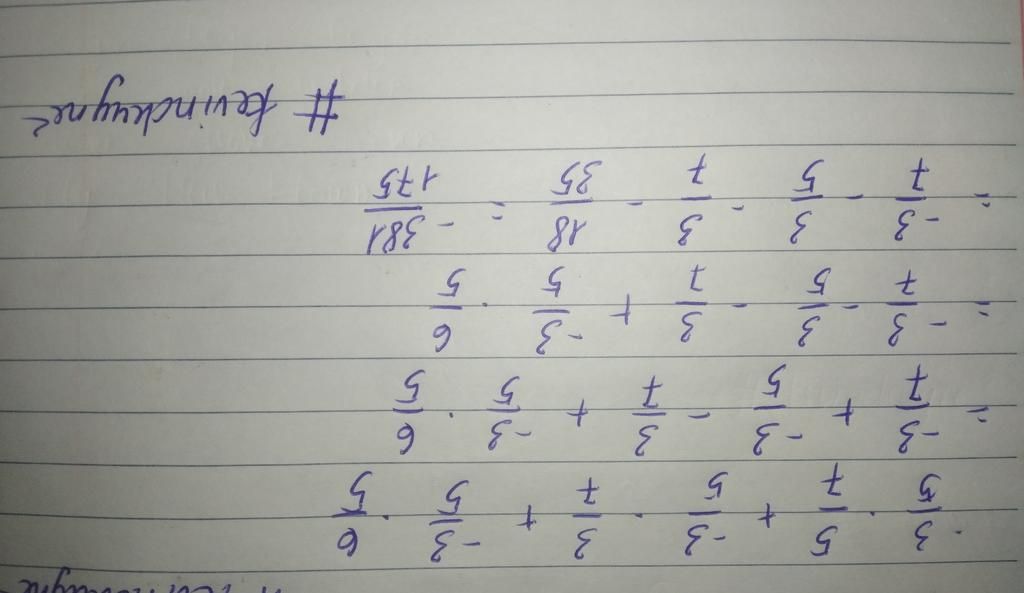 - 3/5 . 5/7 + -3/5 . 3/7 + -3/5 . 6/5
= -3/7 + -3/5 - 3/7 + -3/5 . 6/5
= -3/7 - 3/5 - 3/7 + -3/5 . 6/5
= -3/7 - 3/5 - 3/7 - 18/35 = -381/175
# kevinckyne